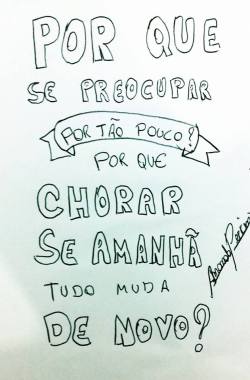 POR QUE
SE PREOCUPAR
POR TÃO POUCO?
POR QUE
CHORAR
SE AMANHÃ
TUDO MUDA
DE NOVO?